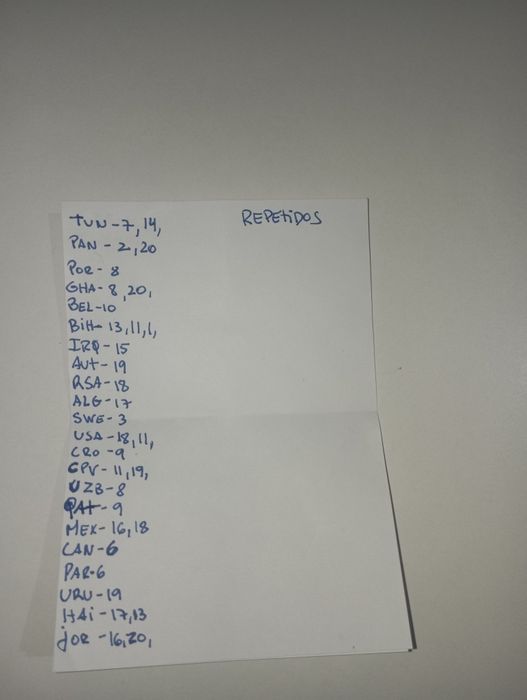 REPEtiDOS
tUN-7,14,
PAN - 2,20
POR - 8
GHA- 8,20,
BEL-10
BiH- 13,11,1,
IRQ - 15
AUt - 19
RSA - 18
ALG - 17
SWE - 3
USA - 18,11,
CRO - 9
CPV - 11,19,
UZB - 8
QAt - 9
MEX - 16,18
CAN - 6
PAR-6
URU - 19
HAi - 17,13
jOR - 16,20,